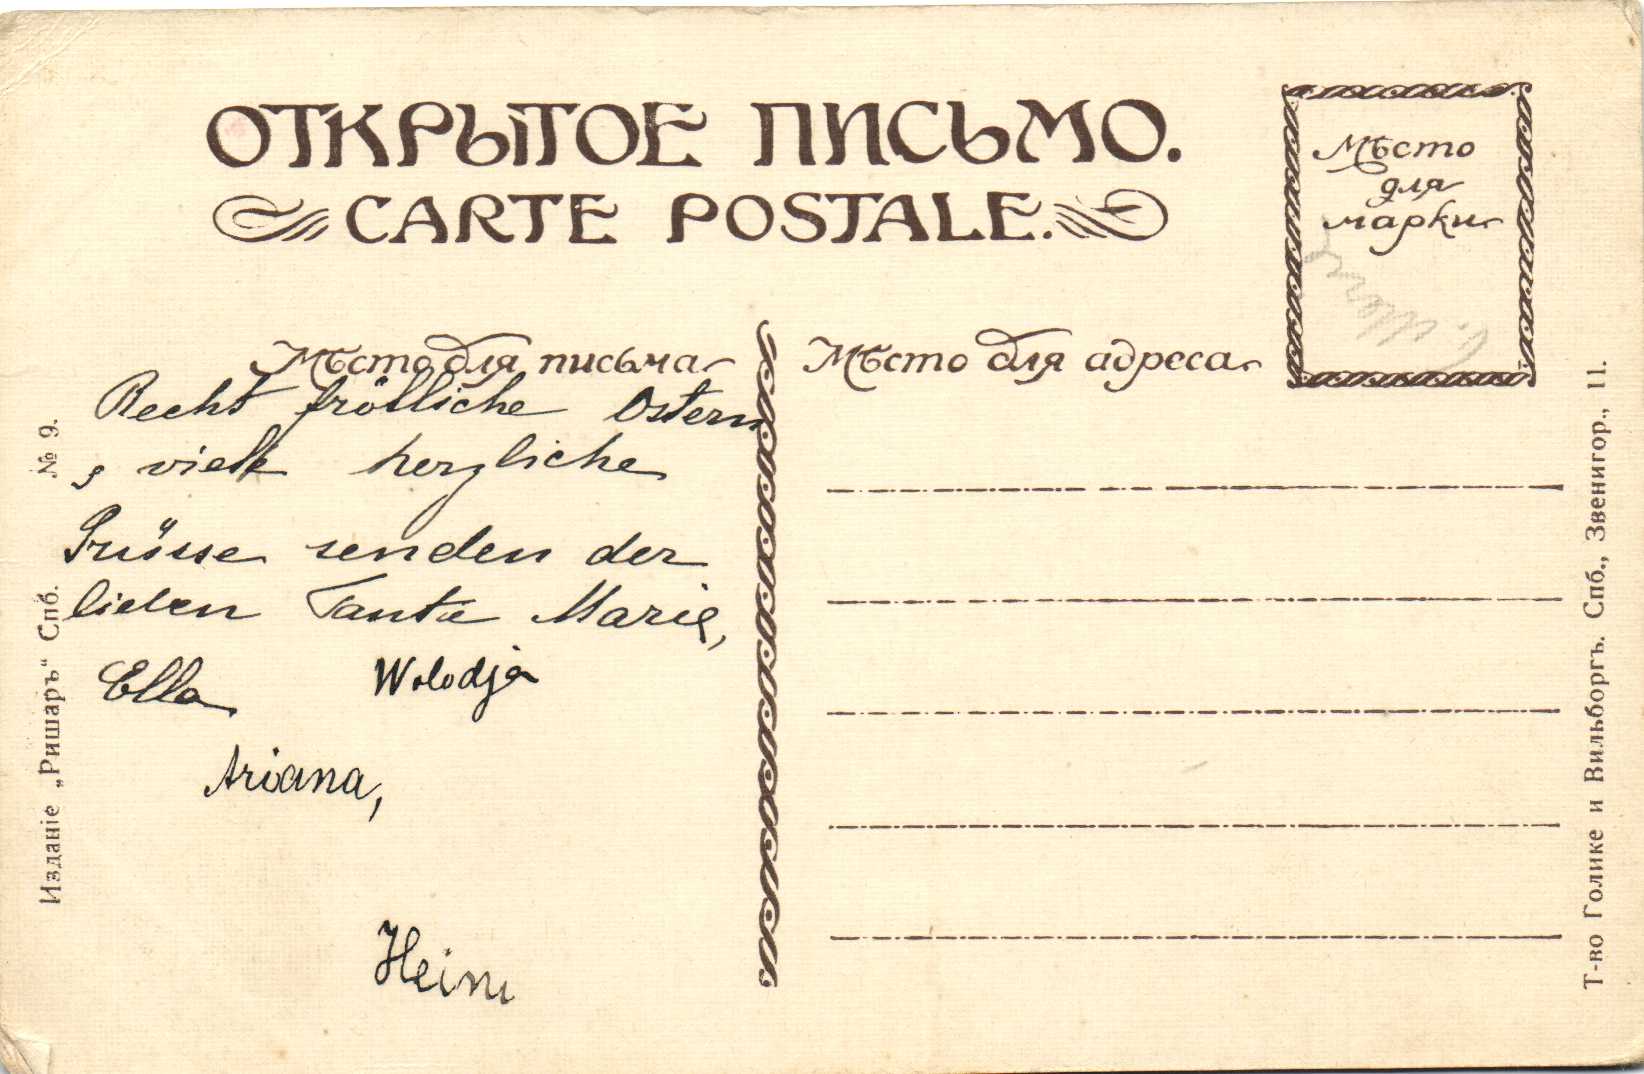 ОТКРЫТОЕ ПИСЬМО.
CARTE POSTALE.
Мѣсто
для
марки
Мѣсто для письма
Мѣсто для адреса
Recht fröhliche Ostern
viele herzliche
Grüsse senden der
lieben Tante Marie,
Ella Wolodja
Ariana,
Heini
Изданіе „Ришаръ“ Спб. № 9.
Т-во Голике и Вильборгъ. Спб., Звенигор., 11.